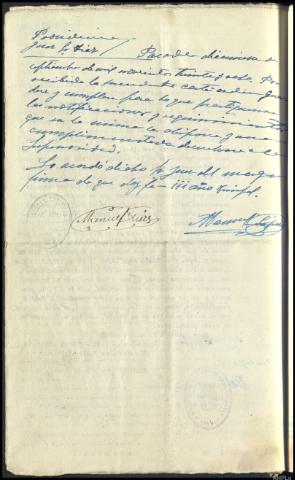 Providencia
Juez Sr. Diez / Paradela diecinueve de
septiembre de mil novecientos treinta y ocho. Por
recibida la precedente carta orden guar
dese y cumplase para lo que practiquense
las notificaciones y requerimientos
que en la misma se dispone y una vez
cumplimentada devuelvase a la
Superioridad.
Lo mandó dicho Sr. Juez del margen
firma de que doy fe - III año Triunfal.
Manuel Diez
Manuel López